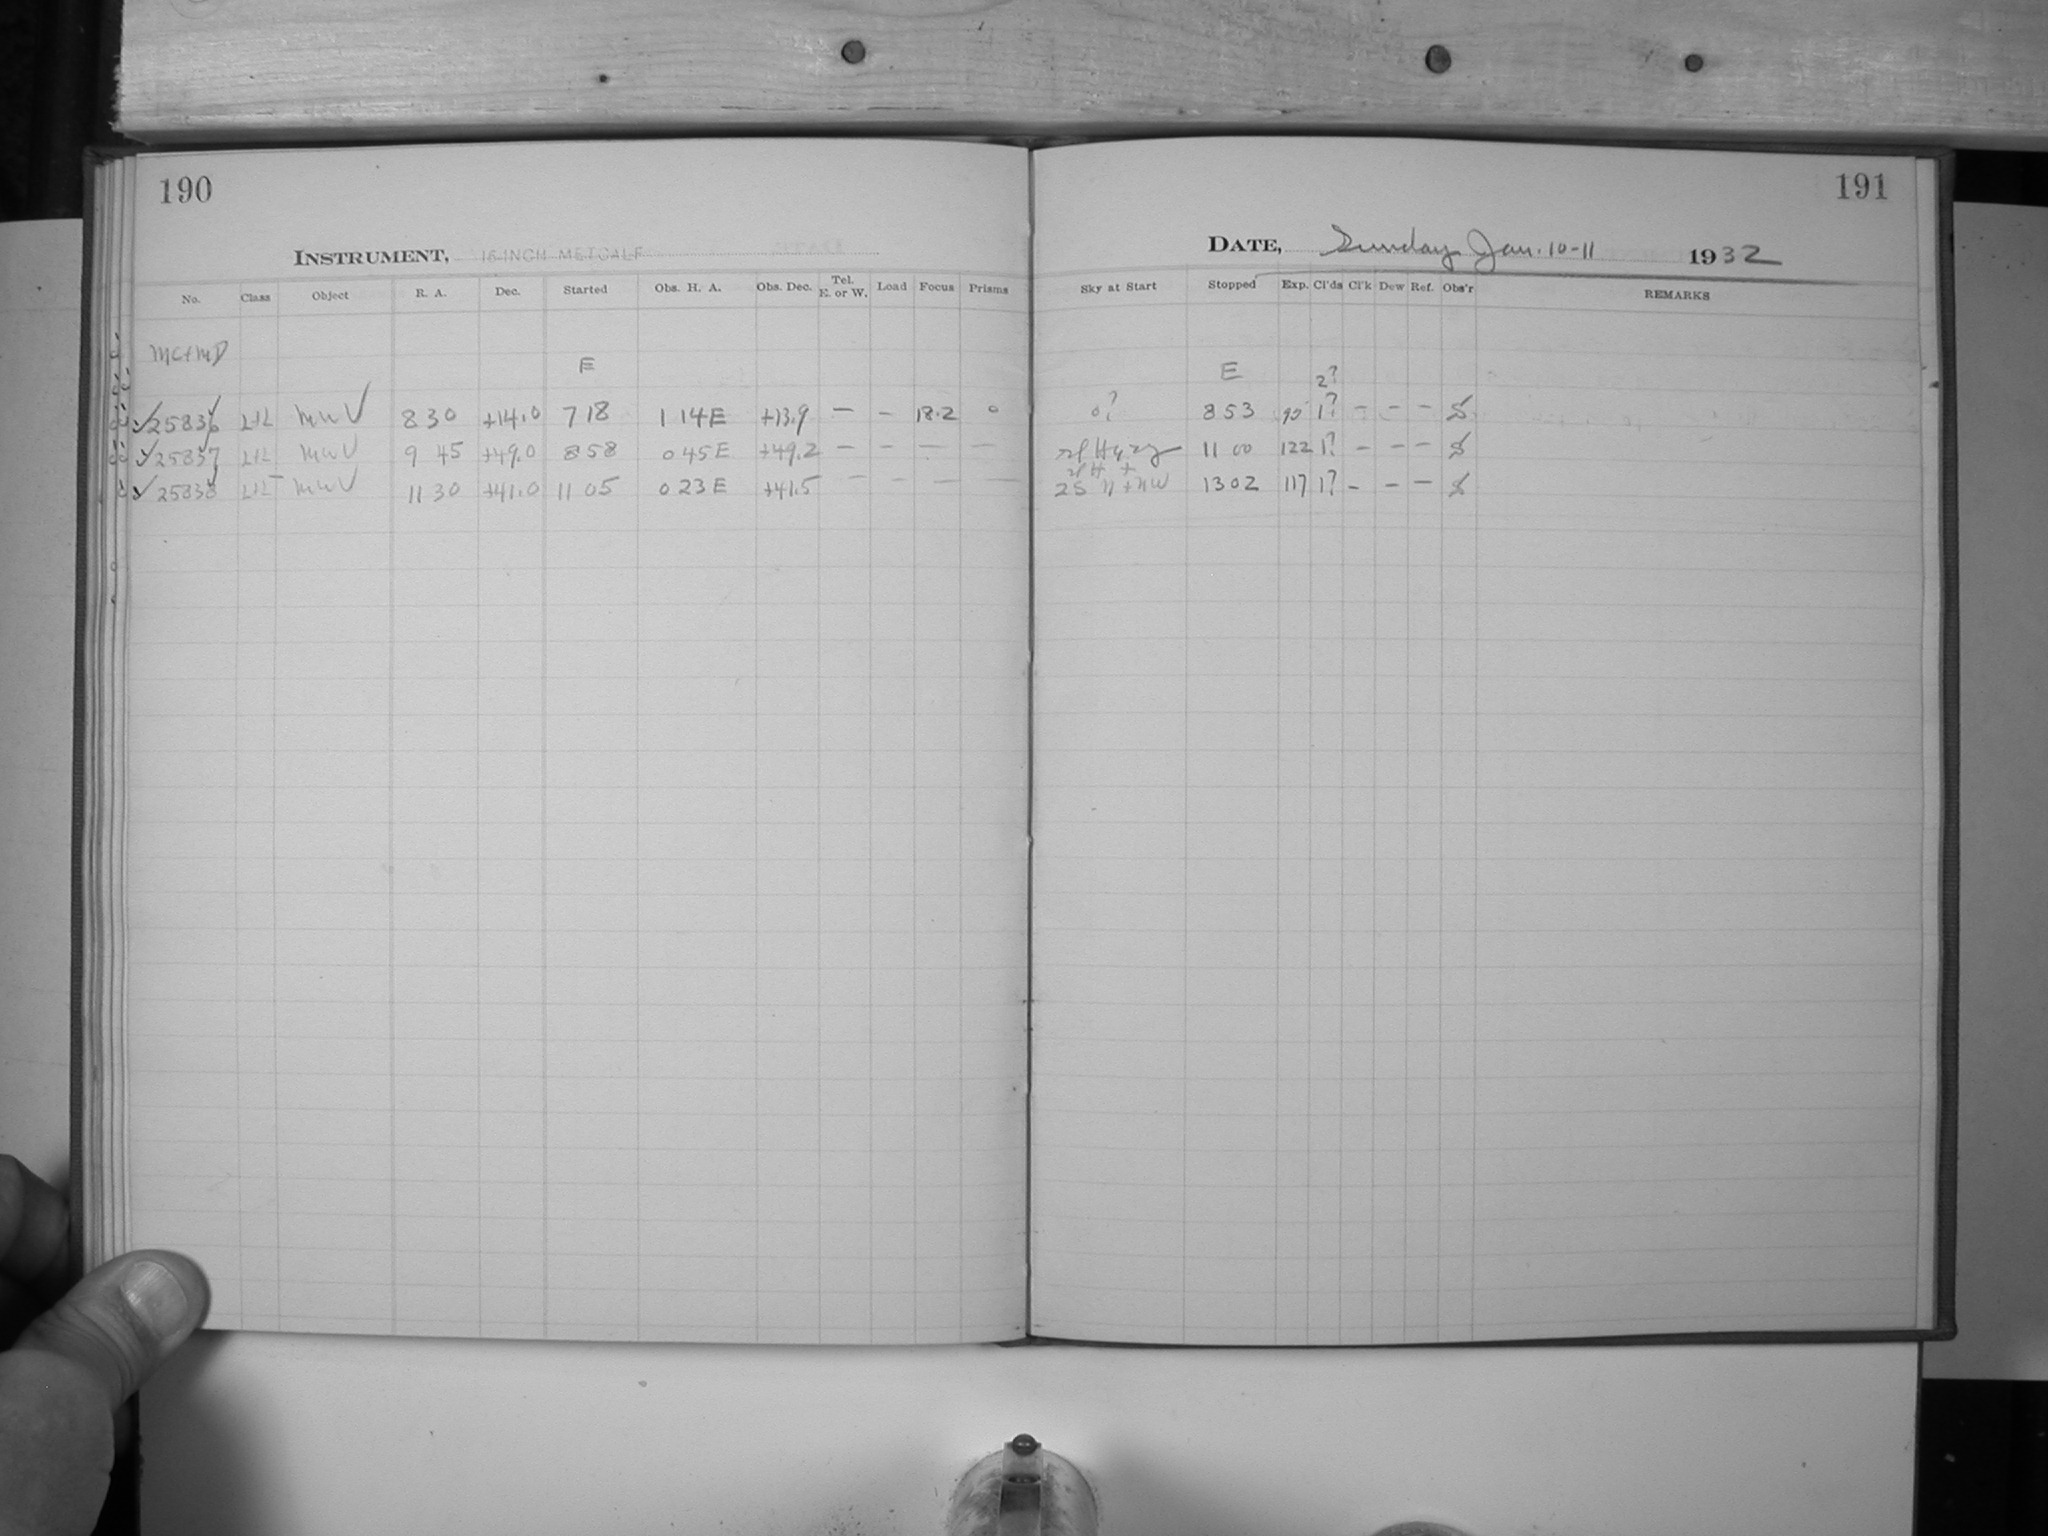 190
INSTRUMENT, 16-INCH METCALF
No. Class Object R. A. Dec. Started Obs. H. A. Obs. Dec. Tel. E. or W. Load Focus Prisms
MC+MD
E
25836 L+L MWV 8 30 +14.0 7 18 1 14 E +13.9 — – 18.2 0
25837 L+L MWV 9 45 +49.0 8 58 0 45 E +49.2 — – — —
25838 L+L MWV 11 30 +41.0 11 05 0 23 E +41.5 — – — —
191
DATE, Sunday Jan. 10-11 1932
Sky at Start Stopped Exp. Cl'ds Cl'k Dew Ref. Obs'r REMARKS
E 2?
0? 8 53 95 1? – – – S
Hazy 11 00 122 1? – – – S
2S N+NW 13 02 117 1? – – – S